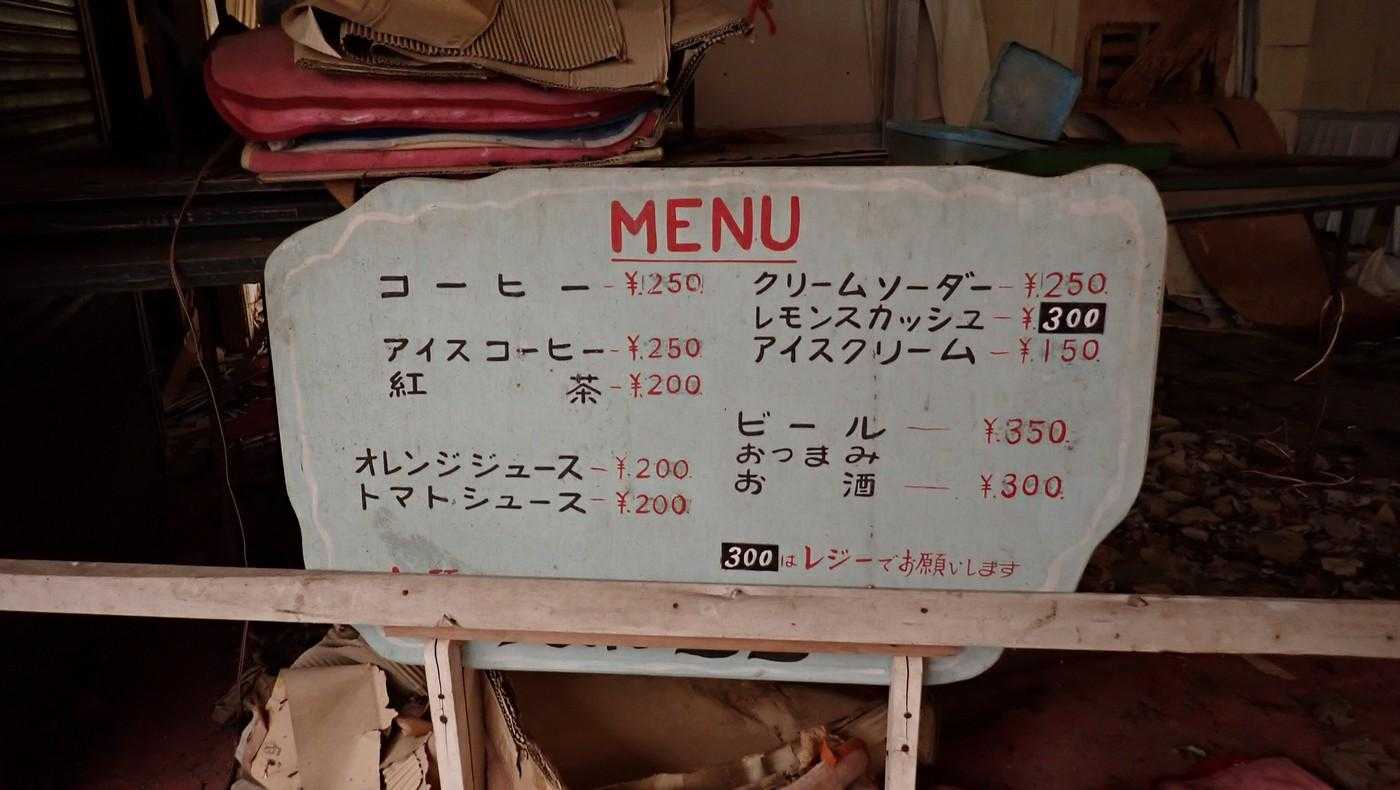 MENU
コーヒー - ¥250
アイスコーヒー - ¥.250
紅茶 - ¥.200
オレンジジュース - ¥.200
トマトジュース - ¥.200
クリームソーダー - ¥.250
レモンスカッシュ - ¥.300
アイスクリーム - ¥.150
ビール — ¥.350
おつまみ
お酒 — ¥.300
300はレジーでお願いします